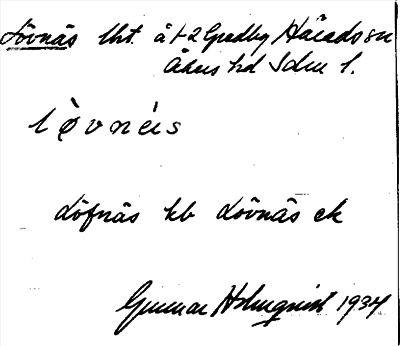 Lövnäs lht. å 1-2 Gredby Härads sn
Åkers hd Sdm l.
lövnäs
Löfnäs kb Lövnäs ek
Gunnar Holmquist 1934